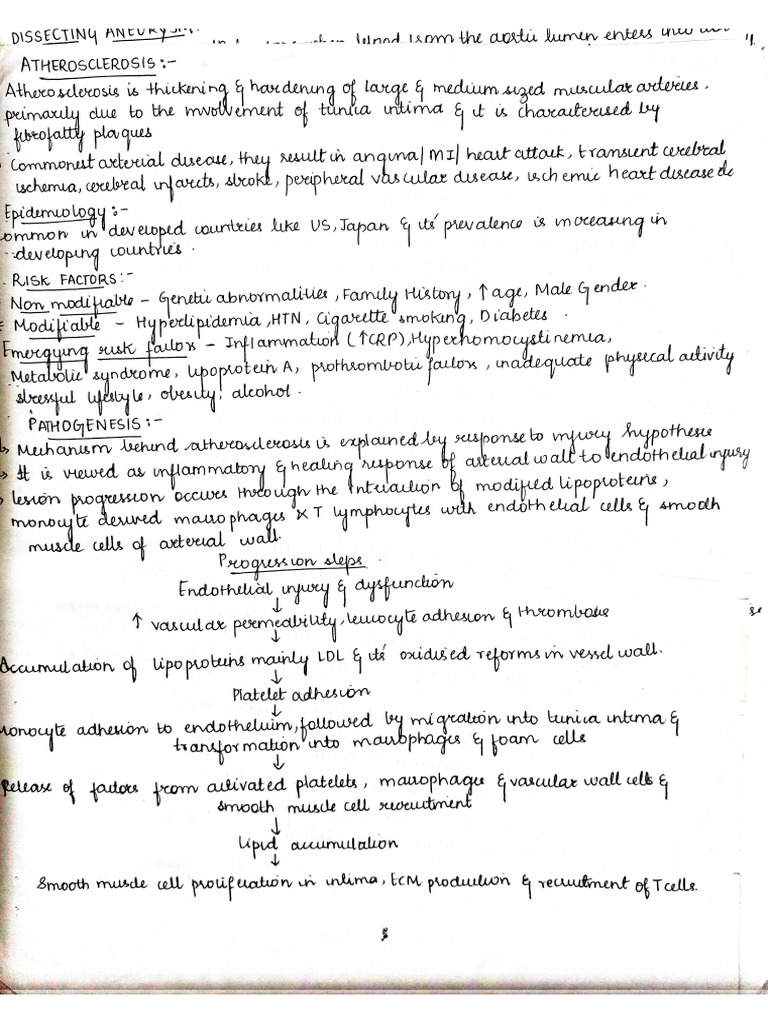 DISSECTING ANEURYSM:- blood from the aortic lumen enters into
ATHEROSCLEROSIS:-
Atherosclerosis is thickening & hardening of large & medium sized muscular arteries.
primarily due to the involvement of tunica intima & it is characterised by
fibrofatty plaques
Commonest arterial disease, they result in angina/MI/heart attack, transient cerebral
ischemia, cerebral infarcts, stroke, peripheral vascular disease, ischemic heart disease etc
Epidemiology:-
ommon in developed countries like US, Japan & its' prevalence is increasing in
developing countries.
RISK FACTORS:-
Non modifiable - Genetic abnormalities, Family History, ↑age, Male Gender.
Modifiable - Hyperlipidemia, HTN, Cigarette smoking, Diabetes.
Emergying risk factors - Inflammation (↑CRP), Hyperhomocystinemia,
Metabolic syndrome, lipoprotein A, prothrombotic factors, inadequate physical activity
stressful lifestyle, obesity, alcohol.
PATHOGENESIS:-
↳ Mechanism behind atherosclerosis is explained by response to injury hypothesis
→ It is viewed as inflammatory & healing response of arterial wall to endothelial injury
↳ lesion progression occurs through the interaction of modified lipoproteins,
monocyte derived macrophages × T lymphocytes with endothelial cells & smooth
muscle cells of arterial wall.
Progression steps.
Endothelial injury & dysfunction
↓
↑ vascular permeability, leucocyte adhesion & thrombosis
↓
Accumulation of lipoproteins mainly LDL & its' oxidised reforms in vessel wall.
↓
Platelet adhesion
↓
Monocyte adhesion to endothelium, followed by migration into tunica intima &
transformation into macrophages & foam cells
↓
Release of factors from activated platelets, macrophages & vascular wall cells &
smooth muscle cell recruitment
↓
Lipid accumulation
↓
Smooth muscle cell proliferation in intima, ECM production & recruitment of T cells.